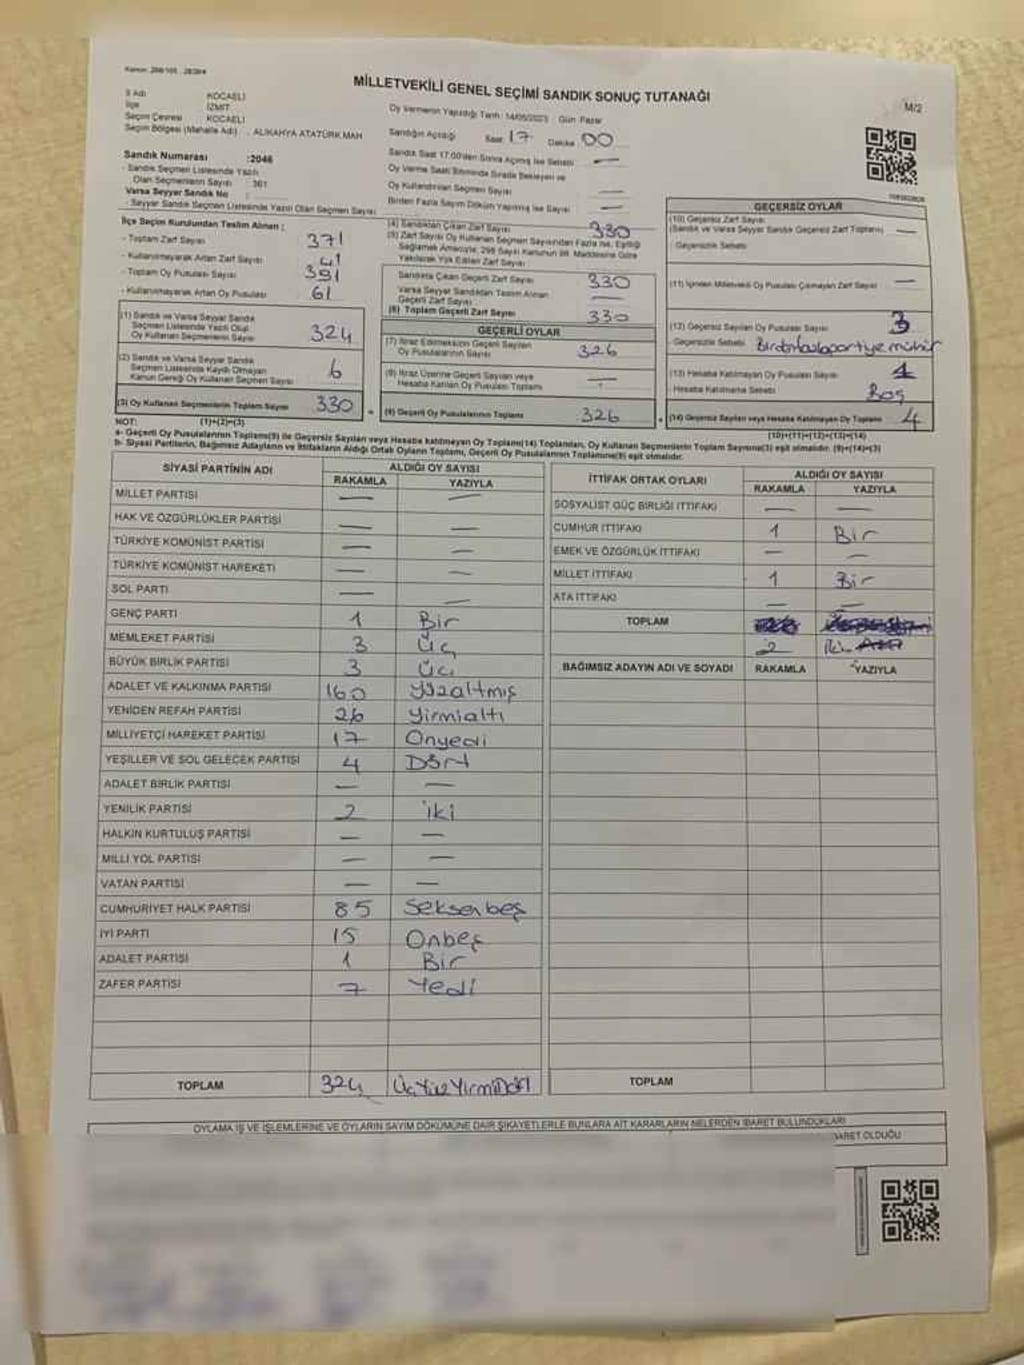 Kanun: 298/105 , 28394
MİLLETVEKİLİ GENEL SEÇİMİ SANDIK SONUÇ TUTANAĞI
M/2
İl Adı KOCAELİ
İlçe İZMİT
Seçim Çevresi KOCAELİ
Seçim Bölgesi (Mahalle Adı) : ALİKAHYA ATATÜRK MAH
Oy Vermenin Yapıldığı Tarih: 14/05/2023 Gün: Pazar
Sandığın Açıldığı Saat: 17 Dakika: 00
Sandık Saat 17.00'den Sonra Açılmış İse Sebebi —
Oy Verme Saati Bitiminde Sırada Bekleyen ve
Oy Kullandırılan Seçmen Sayısı —
Birden Fazla Sayım Döküm Yapılmış İse Sayısı —
Sandık Numarası :2046
- Sandık Seçmen Listesinde Yazılı
Olan Seçmenlerin Sayısı : 361
Varsa Seyyar Sandık No :
- Seyyar Sandık Seçmen Listesinde Yazılı Olan Seçmen Sayısı
İlçe Seçim Kurulundan Teslim Alınan :
- Toplam Zarf Sayısı 371
- Kullanılmayarak Artan Zarf Sayısı 41
- Toplam Oy Pusulası Sayısı 391
- Kullanılmayarak Artan Oy Pusulası 61
(1) Sandık ve Varsa Seyyar Sandık
Seçmen Listesinde Yazılı Olup
Oy Kullanan Seçmenlerin Sayısı 324
(2) Sandık ve Varsa Seyyar Sandık
Seçmen Listesinde Kaydı Olmayan
Kanun Gereği Oy Kullanan Seçmen Sayısı 6
(3) Oy Kullanan Seçmenlerin Toplam Sayısı 330
(1)+(2)=(3)
(4) Sandıktan Çıkan Zarf Sayısı 330
(5) Zarf Sayısı Oy Kullanan Seçmen Sayısından Fazla İse, Eşitliği
Sağlamak Amacıyla; 298 Sayılı Kanunun 98. Maddesine Göre
Yakılarak Yok Edilen Zarf Sayısı
Sandıkta Çıkan Geçerli Zarf Sayısı 330
Varsa Seyyar Sandıktan Teslim Alınan
Geçerli Zarf Sayısı —
(6) Toplam Geçerli Zarf Sayısı 330
GEÇERLİ OYLAR
(7) İtiraz Edilmeksizin Geçerli Sayılan
Oy Pusulalarının Sayısı 326
(8) İtiraz Üzerine Geçerli Sayılan veya
Hesaba Katılan Oy Pusulası Toplamı —
(9) Geçerli Oy Pusulalarının Toplamı 326
GEÇERSİZ OYLAR
(10) Geçersiz Zarf Sayısı
(Sandık ve Varsa Seyyar Sandık Geçersiz Zarf Toplamı) —
- Geçersizlik Sebebi
(11) İçinden Milletvekili Oy Pusulası Çıkmayan Zarf Sayısı —
(12) Geçersiz Sayılan Oy Pusulası Sayısı 3
- Geçersizlik Sebebi Birden fazla partiye mühür
(13) Hesaba Katılmayan Oy Pusulası Sayısı 1
- Hesaba Katılmama Sebebi Boş
(14) Geçersiz Sayılan veya Hesaba Katılmayan Oy Toplamı 4
(10)+(11)+(12)+(13)=(14)
NOT:
a- Geçerli Oy Pusulalarının Toplamı(9) ile Geçersiz Sayılan veya Hesaba katılmayan Oy Toplamı(14) Toplamları, Oy Kullanan Seçmenlerin Toplam Sayısına(3) eşit olmalıdır. (9)+(14)=(3)
b- Siyasi Partilerin, Bağımsız Adayların ve İttifakların Aldığı Ortak Oyların Toplamı, Geçerli Oy Pusulalarının Toplamına(9) eşit olmalıdır.
SİYASİ PARTİNİN ADI ALDIĞI OY SAYISI
RAKAMLA YAZIYLA
MİLLET PARTİSİ — —
HAK VE ÖZGÜRLÜKLER PARTİSİ — —
TÜRKİYE KOMÜNİST PARTİSİ — —
TÜRKİYE KOMÜNİST HAREKETİ — —
SOL PARTİ — —
GENÇ PARTİ 1 Bir
MEMLEKET PARTİSİ 3 Üç
BÜYÜK BİRLİK PARTİSİ 3 Üç
ADALET VE KALKINMA PARTİSİ 160 Yüzaltmış
YENİDEN REFAH PARTİSİ 26 Yirmialtı
MİLLİYETÇİ HAREKET PARTİSİ 17 Onyedi
YEŞİLLER VE SOL GELECEK PARTİSİ 4 Dört
ADALET BİRLİK PARTİSİ — —
YENİLİK PARTİSİ 2 iki
HALKIN KURTULUŞ PARTİSİ — —
MİLLİ YOL PARTİSİ — —
VATAN PARTİSİ — —
CUMHURİYET HALK PARTİSİ 85 Seksenbeş
İYİ PARTİ 15 Onbeş
ADALET PARTİSİ 1 Bir
ZAFER PARTİSİ 7 Yedi
TOPLAM 324 ÜçYüzYirmiDört
İTTİFAK ORTAK OYLARI ALDIĞI OY SAYISI
RAKAMLA YAZIYLA
SOSYALİST GÜÇ BİRLİĞİ İTTİFAKI — —
CUMHUR İTTİFAKI 1 Bir
EMEK VE ÖZGÜRLÜK İTTİFAKI — —
MİLLET İTTİFAKI 1 Bir
ATA İTTİFAKI — —
TOPLAM
2 İki
BAĞIMSIZ ADAYIN ADI VE SOYADI RAKAMLA YAZIYLA
TOPLAM
OYLAMA İŞ VE İŞLEMLERİNE VE OYLARIN SAYIM DÖKÜMÜNE DAİR ŞİKAYETLERLE BUNLARA AİT KARARLARIN NELERDEN İBARET BULUNDUKLARI
BARET OLDUĞU